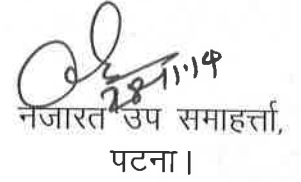 28.11.14
नजारत उप समाहर्त्ता,
पटना।